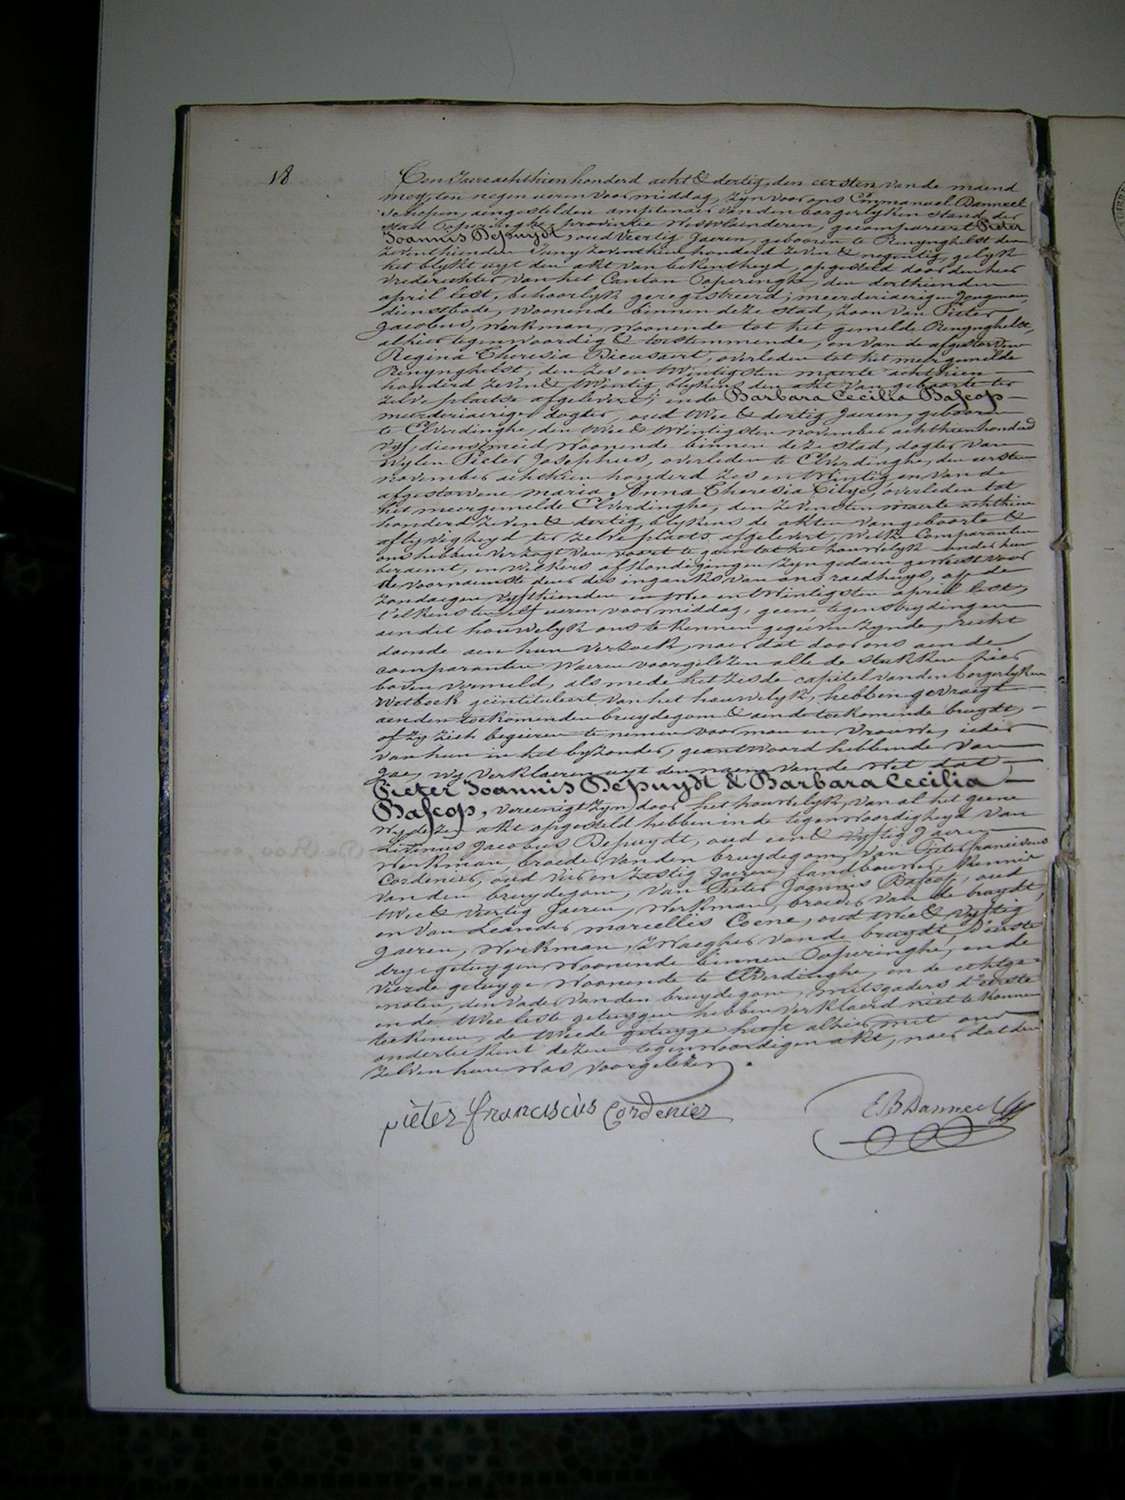 18
Ten Jaere achthien honderd acht & dertig, den eersten van de maend
mey, ten negen ueren voormiddag, zyn voor ons Emmanuel Danneel
schepen, aengestelden amptenaer van den borgerlyken stand der
stad Poperinghe, provintie Westvlaenderen, gecompareert Pieter
Joannis Depuydt, oud veertig Jaeren, geboren te Renynghelst den
zeventhienden Juny zeventhien honderd zeven & negentig, gelyk
het blykt uyt den akt van bekentheyd, opgesteld door den heer
vrederechter van het Canton Poperinghe, den derthienden
april lest, behoorlyk geregistreerd; meerderjaerigen Jongman,
dienstbode, woonende binnen deze stad, zoon van Pieter
Jacobus, werkman, woonende tot het gemelde Renynghelst,
alhier tegenwoordig & toestemmende, en van de afgestorven
Regina Theresia overleden tot het meergemelde
Renynghelst, den zes en twintigsten maerte achthien
honderd zeven & twintig blykens den akt van geboorte ter
zelve plaetse afgelevert; ende Barbara Cecilia Bascop
meerderjaerige dogter, oud twee & dertig Jaeren, geboren
te Elverdinghe, den twee & twintigsten november achthien honderd
vyf, dienstmeid, woonende binnen deze stad, dogter van
wylen Pieter Josephus, overleden te Elverdinghe, den eersten
november achthien honderd zes en twintig en van de
afgestorvene maria Anna Theresia overleden tot
het meergemelde Elverdinghe, den zevensten maerte achthien
honderd zeven & dertig, blykens de akten van geboorte &
aflyvigheyd ter zelve plaets afgelevert; welke Comparanten
ons hebben verzogt van voort te gaen tot het houwelyk onder hun
beraemt, en wiekers afkondigingen zyn gedaen geweest voor
de voornaemste deur des inganks van ons raedhuys, op de
zondaegen vyfthienden en twee en twintigsten april lest,
t'elkens ten elf ueren voormiddag, geene tegenstrydingen
aen dit houwelyk ons te kennen gegeven zynde, recht
doende aen hun verzoek, naer dat door ons aen de
comparanten waeren voorgelezen alle de stukken hier
boven vermeld, als mede het zesde capitel van den borgerlyken
Wetboek geïntituleert van het houwelyk, hebben gevraegt
aen den toekomenden bruydegom & aen de toekomende bruydt,
of zy zich begeeren te nemen voor man en vrouwe, ieder
van hun in het byzonder, geantwoord hebbende van
jae, wy verklaeren uyt den naem van de Wet dat
Pieter Joannis Depuydt & Barbara Cecilia
Bascop, vereenigt zyn door het houwelyk, van al het geene
wy dezen akt opgesteld hebben in de tegenwoordigheyd van
Livinus Jacobus Depuydt, oud een & vyftig Jaeren
werkman broeder van den bruydegom, van Pieter franciscus
Cordenier, oud vier en zestig Jaeren, landbouwer, kennis
van den bruydegom, van Pieter Joannis Bascop, oud
twee & veertig Jaeren, werkman, broeder van de bruydt,
en van Leander marcellis Coene, oud twee & vyftig
Jaeren, werkman, zwaegher van de bruydt, d'eerste
drye getuygen woonende binnen Poperinghe, en de
vierde getuyge woonende te Elverdinghe, en de echtge-
noten, den vader van den bruydegom, mitsgaders d'eerste
en de twee leste getuygen hebben verklaerd niet te konnen
teekenen, de tweede getuyge heeft alhier met ons
onderteekent dezen tegenwoordigen akt, naer dat den
zelven hun was voorgelezen.
pieter franciscus Cordenier
E B Danneel